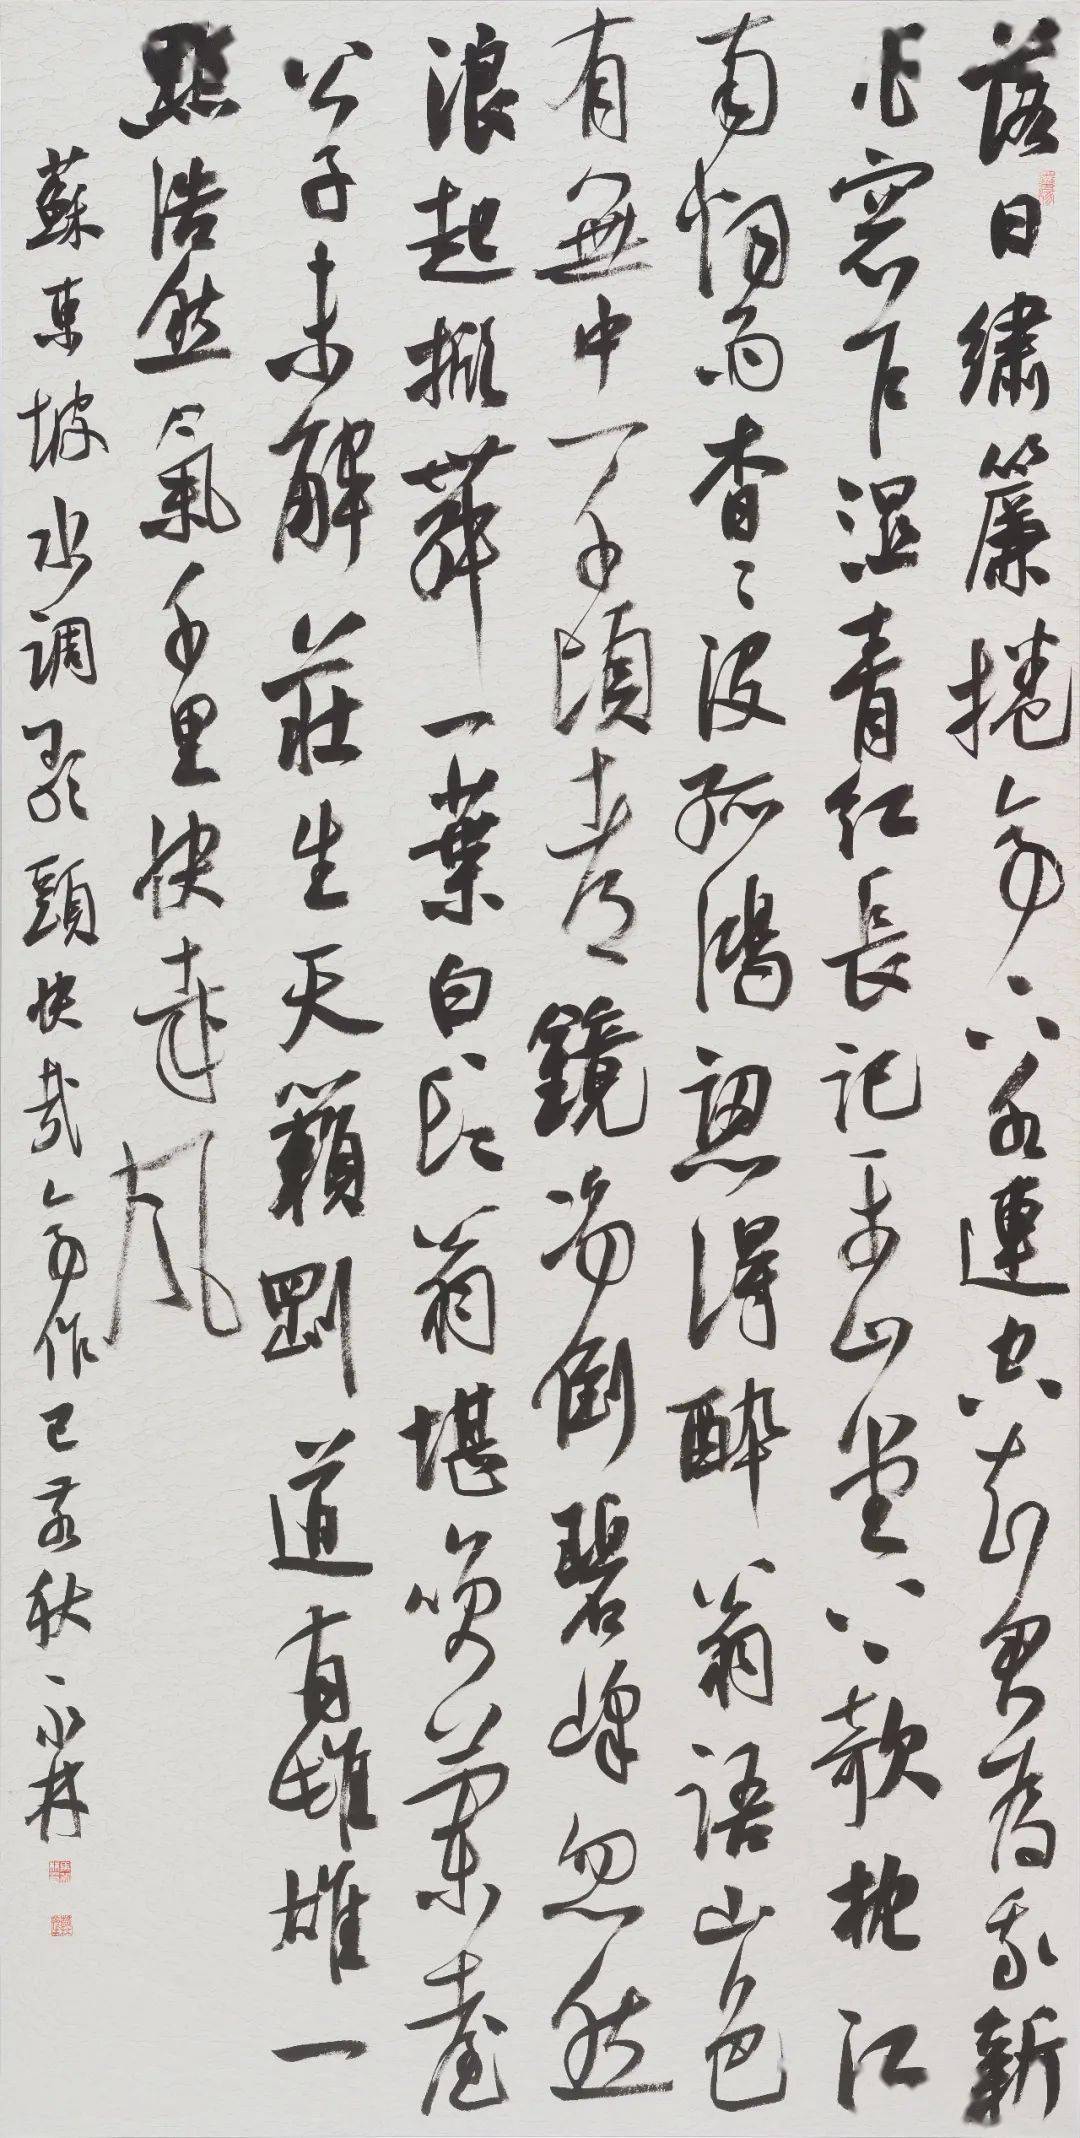 落日繡簾捲亭下水連空知君為我新
作窓戶湿青红長记平山堂上欹枕江
南烟雨杳〻没孤鴻認得醉翁語山色
有無中一千頃都鏡净倒碧峰忽然
浪起掀舞一葉白头翁堪笑蘭臺
公子未解莊生天籟剛道有雌雄一
點浩然氣千里快哉風
蘇東坡水调歌頭快哉亭作己亥秋